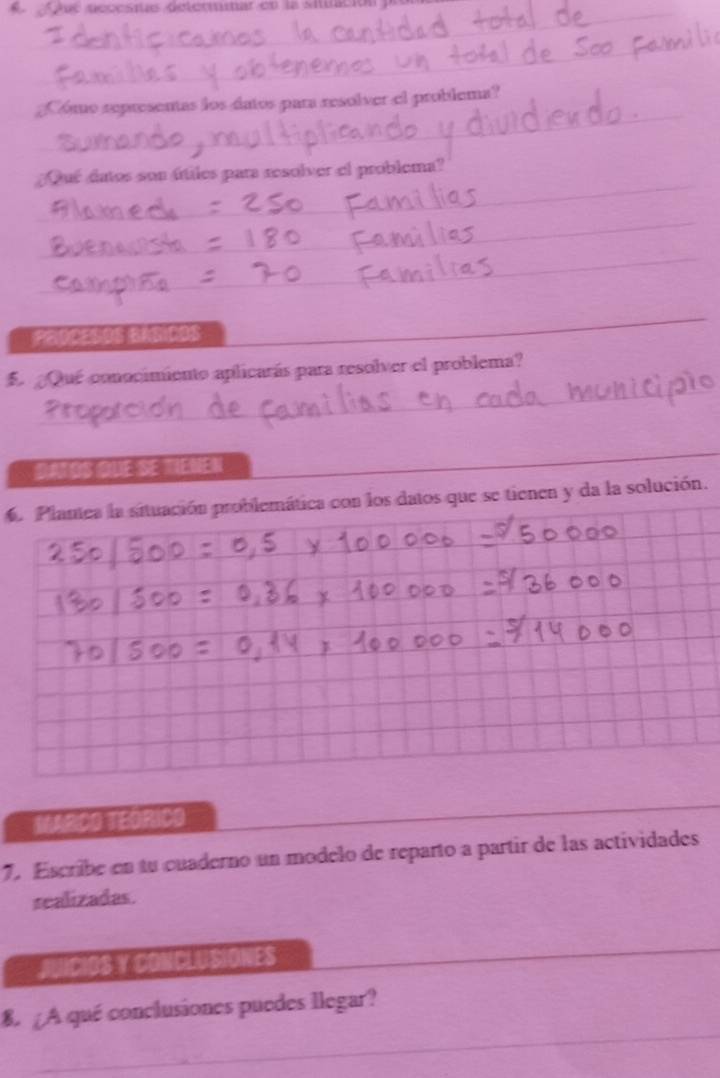 4. ¿Qué necesitas determinar en la situación
Identificamos la cantidad total de
familias y obtenemos un total de 500 familia
¿Cómo representas los datos para resolver el problema?
sumando, multiplicando y dividiendo.
¿Qué datos son útiles para resolver el problema?
Alameda = 250 Familias
Buenavista = 180 Familias
campiña = 70 Familias
PROCESOS BÁSICOS
5. ¿Qué conocimiento aplicarás para resolver el problema?
Proporción de familias en cada municipio
DATOS QUE SE TIENEN
6. Plantea la situación problemática con los datos que se tienen y da la solución.
250/500 = 0,5 x 100 000 = $/50000
180/500 = 0.36 x 100 000 = $/36000
70/500 = 0,14 x 100 000 = $/14000
MARCO TEÓRICO
7. Escribe en tu cuaderno un modelo de reparto a partir de las actividades
realizadas.
JUICIOS Y CONCLUSIONES
8. ¿A qué conclusiones puedes llegar?